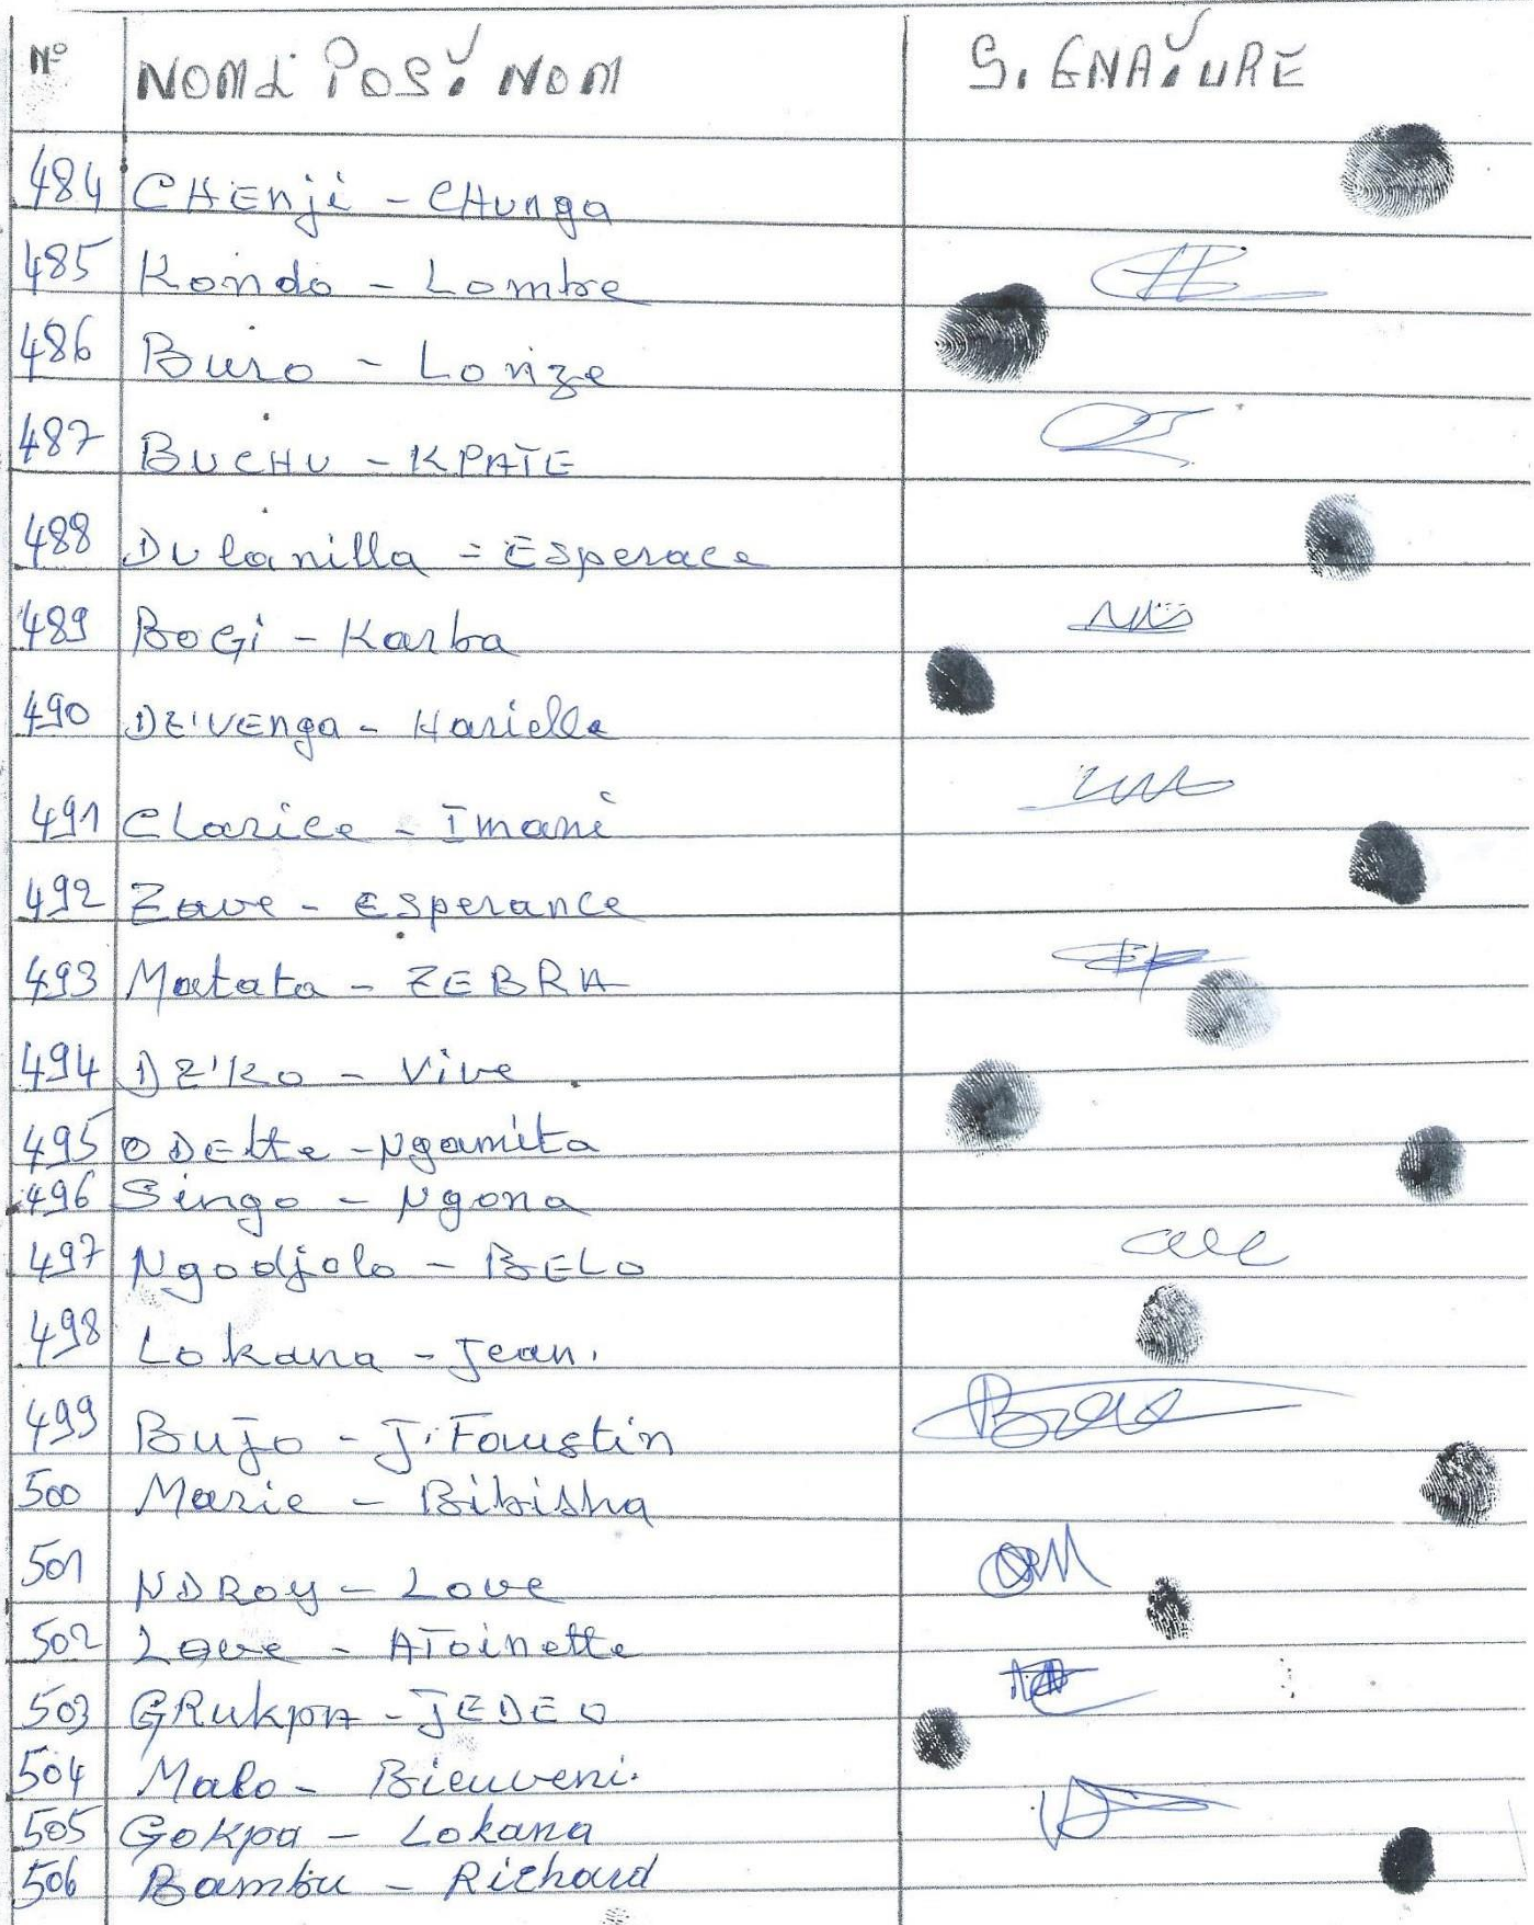 N° NOM & POST NOM SIGNATURE
484 CHEnji - CHunga
485 Kondo - Lombre
486 Buro - Lonze
487 BUCHU - KPATE
488 Dulanilla = Esperace
489 BoGi - Karba
490 DZ'VEnga - Harielle
491 Clarice - Imani
492 Zave - Esperance
493 Matata - ZEBRA
494 DZ'Ro - Vive
495 ODEtte - Ngamita
496 Singo - Ngona
497 Ngodjolo - BELO
498 Lokana - Jean.
499 Bujo - J. Faustin
500 Marie - Bibisha
501 NDRoy - Love
502 Love - AToinette
503 GRukpa - JEDEO
504 Malo - Bieuveni.
505 Gokpa - Lokana
506 Bambu - Richard